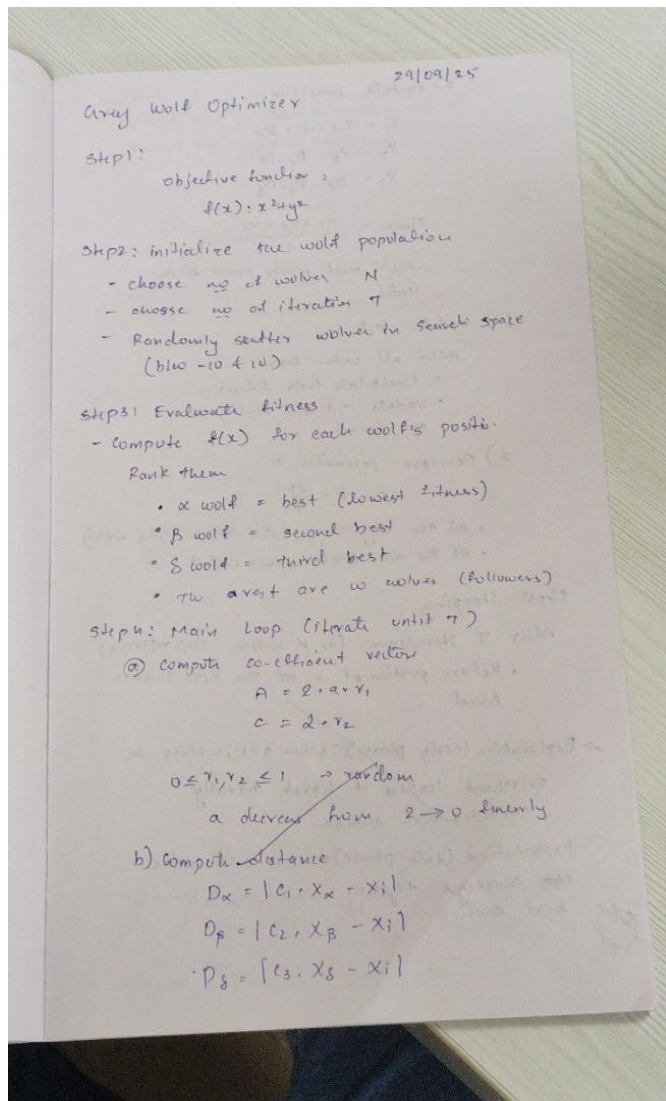 29/09/25
Grey Wolf Optimizer
Step1:
Objective function :
f(x) : x²+y²
Step2: initialize the wolf population
- choose no of wolves N
- choose no of iteration T
- Randomly scatter wolves in search space
(b/w -10 & 10)
Step3: Evaluate fitness
- Compute f(x) for each wolf's positio.
Rank them
• α wolf = best (lowest fitness)
• β wolf = second best
• δ wolf = third best
• The arest are ω wolves (followers)
Step4: Main Loop (iterate until T)
ⓐ Compute co-efficient vectors
A = 2·a·r₁
C = 2·r₂
0 ≤ r₁, r₂ ≤ 1 → random
a decreas from 2 → 0 linearly
b) Compute distance
Dα = |C₁·Xα - Xi|
Dβ = |C₂·Xβ - Xi|
Dδ = |C₃·Xδ - Xi|